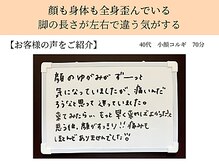 顔も身体も全身歪んでいる
脚の長さが左右で違う気がする
【お客様の声をご紹介】
40代 小顔コルギ 70分
顔のゆがみがずーっと
気になっていましたが、痛いんだ
ろうなと思って迷っていました。
宝てみたらい、もっと早く来ればよかったと
思う位、顔がすっきり!!痛みも
ほとんどありませんでした。